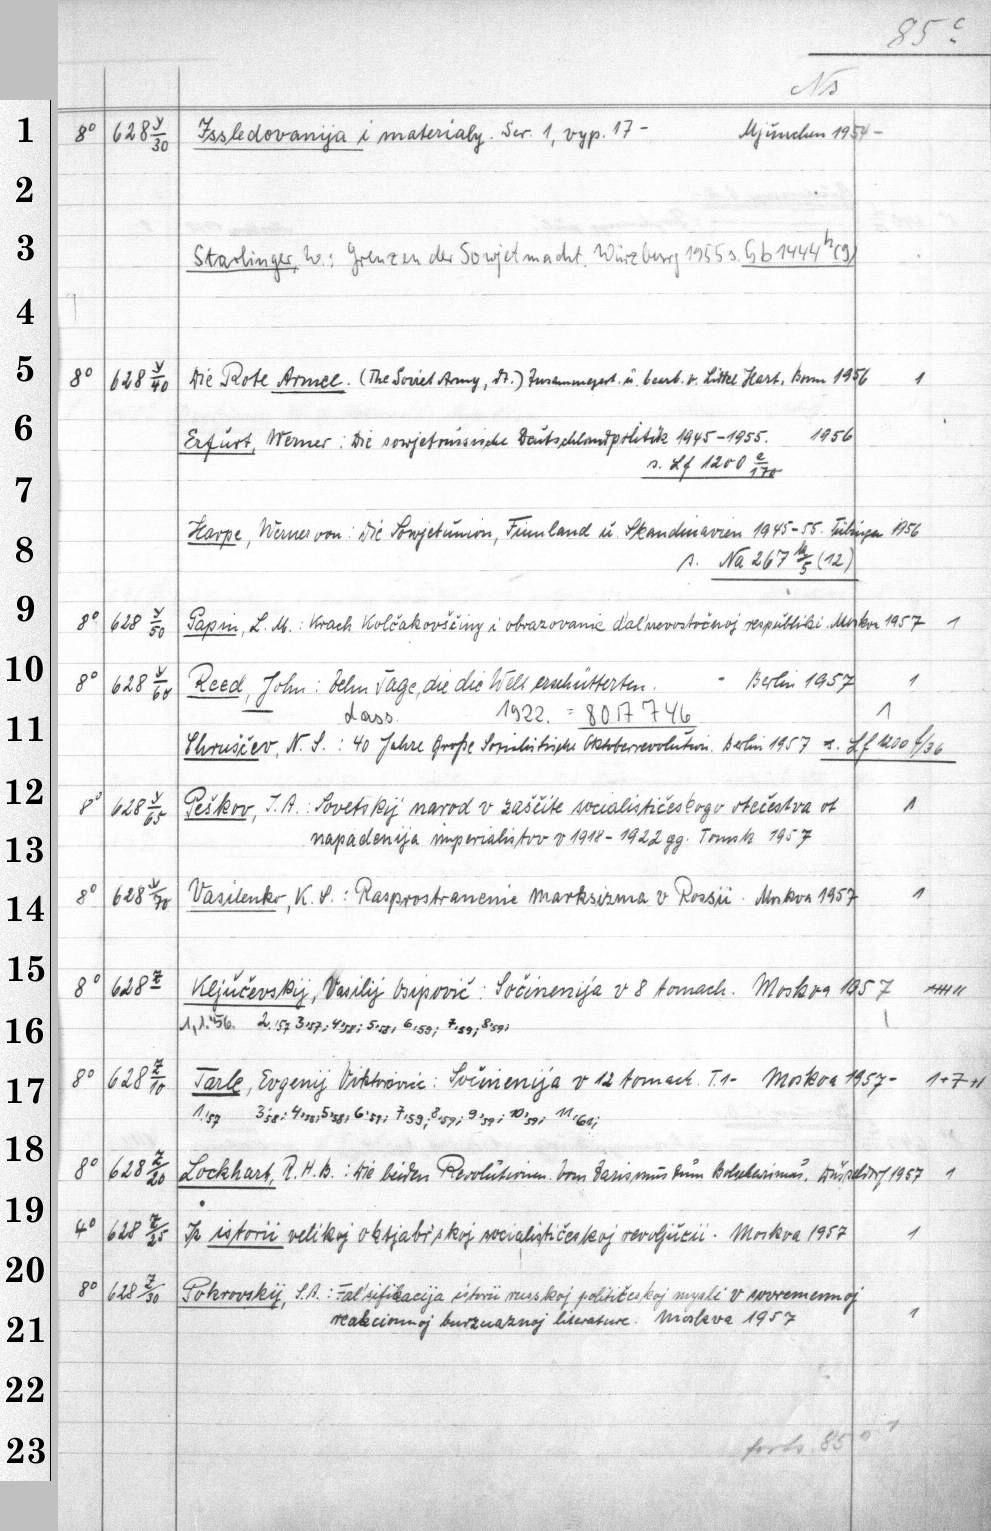 85 c
Ns
1 8° 628 y/30 Issledovanija i materialy. Ser. 1, vyp. 17 - Mjunchen 1954 -
2
3 Starlinger, W.: Grenzen der Sowjetmacht. Würzburg 1955 s. Gb 1444 h (9)
4
5 8° 628 y/40 Die Rote Armee. (The Soviet Army, dt.) Zusammengest. u. bearb. v. Liddel Hart. Bonn 1956 1
6 Erfurt, Werner: Die sowjetrussische Deutschlandpolitik 1945-1955. 1956
s. Lf 1200 e/170
7
Harpe, Werner von: Die Sowjetunion, Finnland u. Skandinavien 1945-55. Tübingen 1956
8 s. Na 267 k/5 (12)
9 8° 628 y/50 Papin, L. M.: Krach Kolčakovščiny i obrazovanie dal'nevostočnoj respubliki. Moskva 1957 1
10 8° 628 y/60 Reed, John: Zehn Tage, die die Welt erschütterten. - Berlin 1957 1
dass. 1922. = 80 17 746 1
11 Chruščev, N. S.: 40 Jahre Große Sozialistische Oktoberrevolution. Berlin 1957 s. Lf 1200 f/36
12 8° 628 y/65 Peškov, I. A.: Sovetskij narod v zaščite socialističeskogo otečestva ot 1
13 napadenija imperialistov v 1918-1922 gg. Tomsk 1957
14 8° 628 y/70 Vasilenko, K. S.: Rasprostranenie marksizma v Rossii. Moskva 1957 1
15 8° 628 z Ključevskij, Vasilij Osipovič: Sočinenija v 8 tomach. Moskva 1957
16 1,1.'56. 2.'57 3'57; 4'58; 5'58; 6'59; 7'59; 8'59;
17 8° 628 z/10 Tarle, Evgenij Viktorovic: Sočinenija v 12 tomach. T. 1- Moskva 1957- 1+7+1
1'57 3'58; 4'58; 5'58; 6'59; 7'59; 8'59; 9'59; 10'59; 11'61;
18 8° 628 z/20 Lockhart, R. H. B.: Die beiden Revolutionen. Vom Zarismus zum Bolschewismus. Düsseldorf 1957 1
19 4° 628 z/25 Iz istorii velikoj oktjabr'skoj socialističeskoj revoljucii. Moskva 1957 1
20 8° 628 z/30 Pokrovskij, S. A.: Fal'sifikacija istorii russkoj političeskoj mysli v sovremennoj
21 reakcionnoj burzuaznoj literature. Moskva 1957 1
22
23 forts. 85 d 1